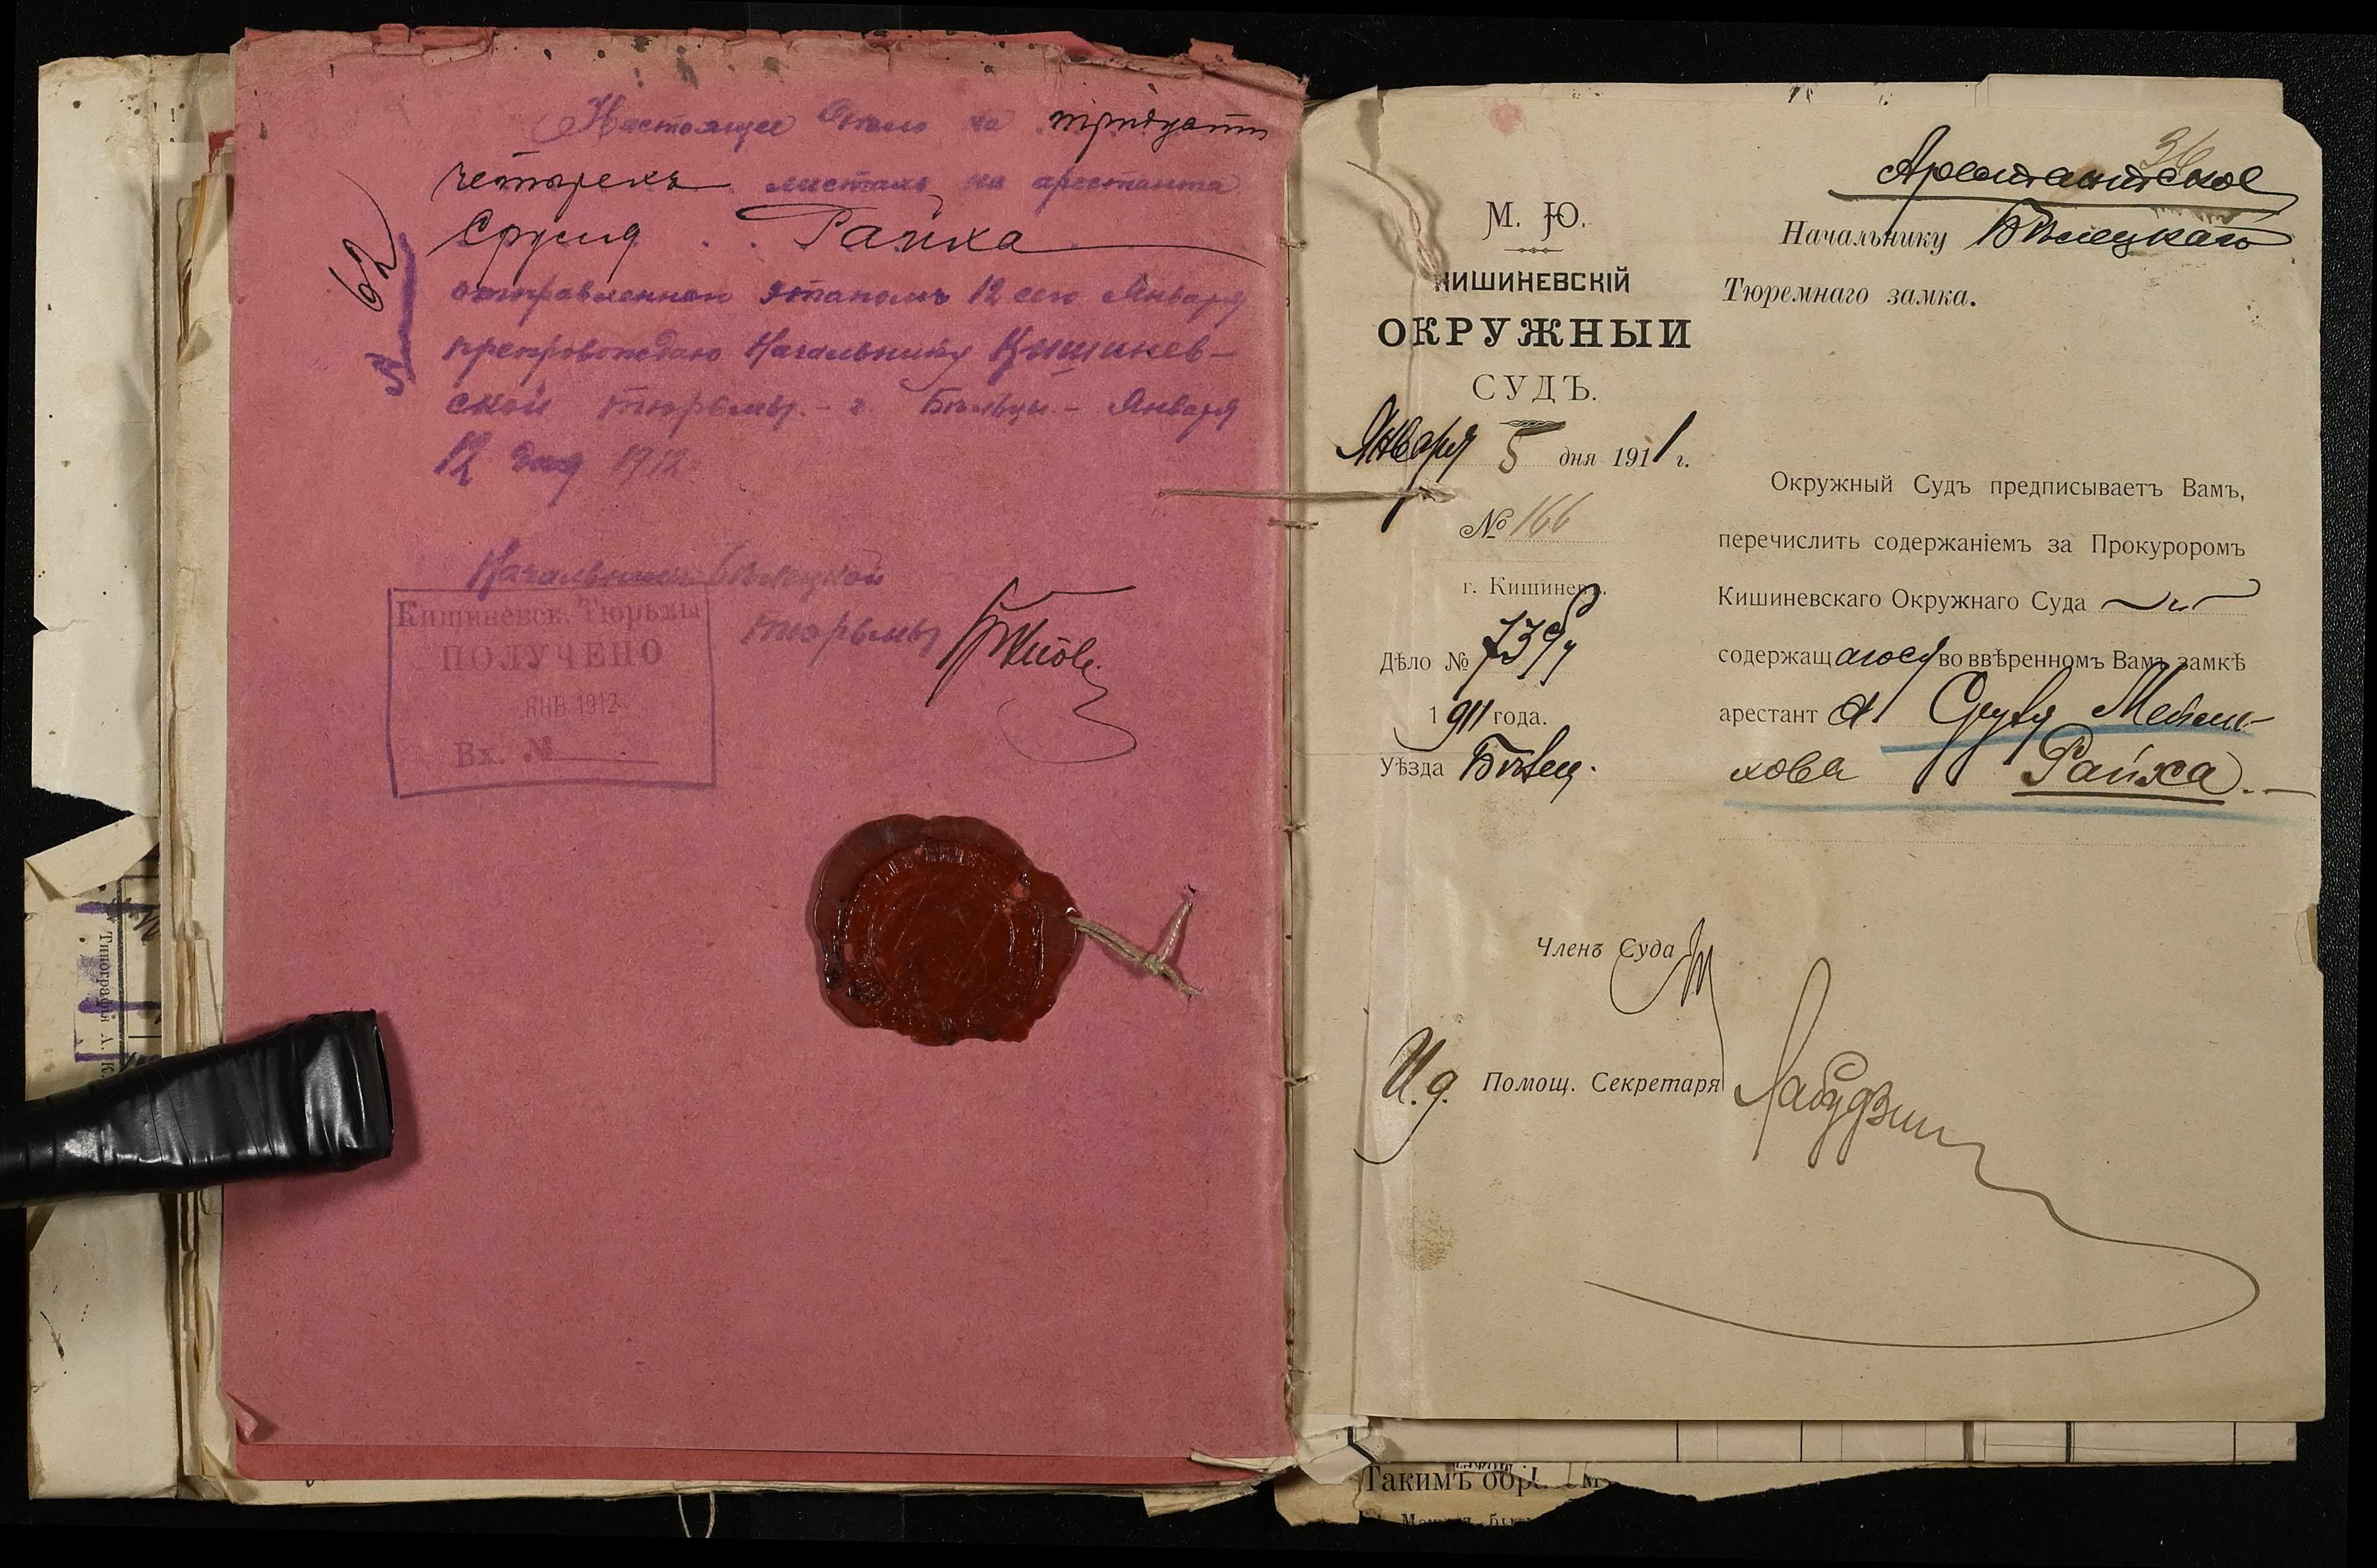 Настоящее дело на тридцати
четырехъ листахъ на арестанта
Сруля Райха
отправленнаго этапомъ 12 сего Января
препровождаю Начальнику Кишинев-
ской тюрьмы. – г. Бѣльцы. – Января
12 дня 1912
62
Начальникъ Бѣлецкой
тюрьмы
Кишиневск. Тюрьмы
ПОЛУЧЕНО
ЯНВ 1912
Вх. №
Типографія А. К.
36
Арестантское
М. Ю.
КИШИНЕВСКІЙ
ОКРУЖНЫЙ
СУДЪ.
Января 5 дня 1911 г.
№ 166
г. Кишиневъ.
Дѣло № 739
1911 года.
Уѣзда Бѣлец.
Начальнику Бѣлецкаго
Тюремнаго замка.
Окружный Судъ предписываетъ Вамъ,
перечислить содержаніемъ за Прокуроромъ
Кишиневскаго Окружнаго Суда
содержащагося во ввѣренномъ Вамъ замкѣ
арестанта Сруля
хова Райха. –
Членъ Суда
И. д. Помощ. Секретаря
Такимъ обр